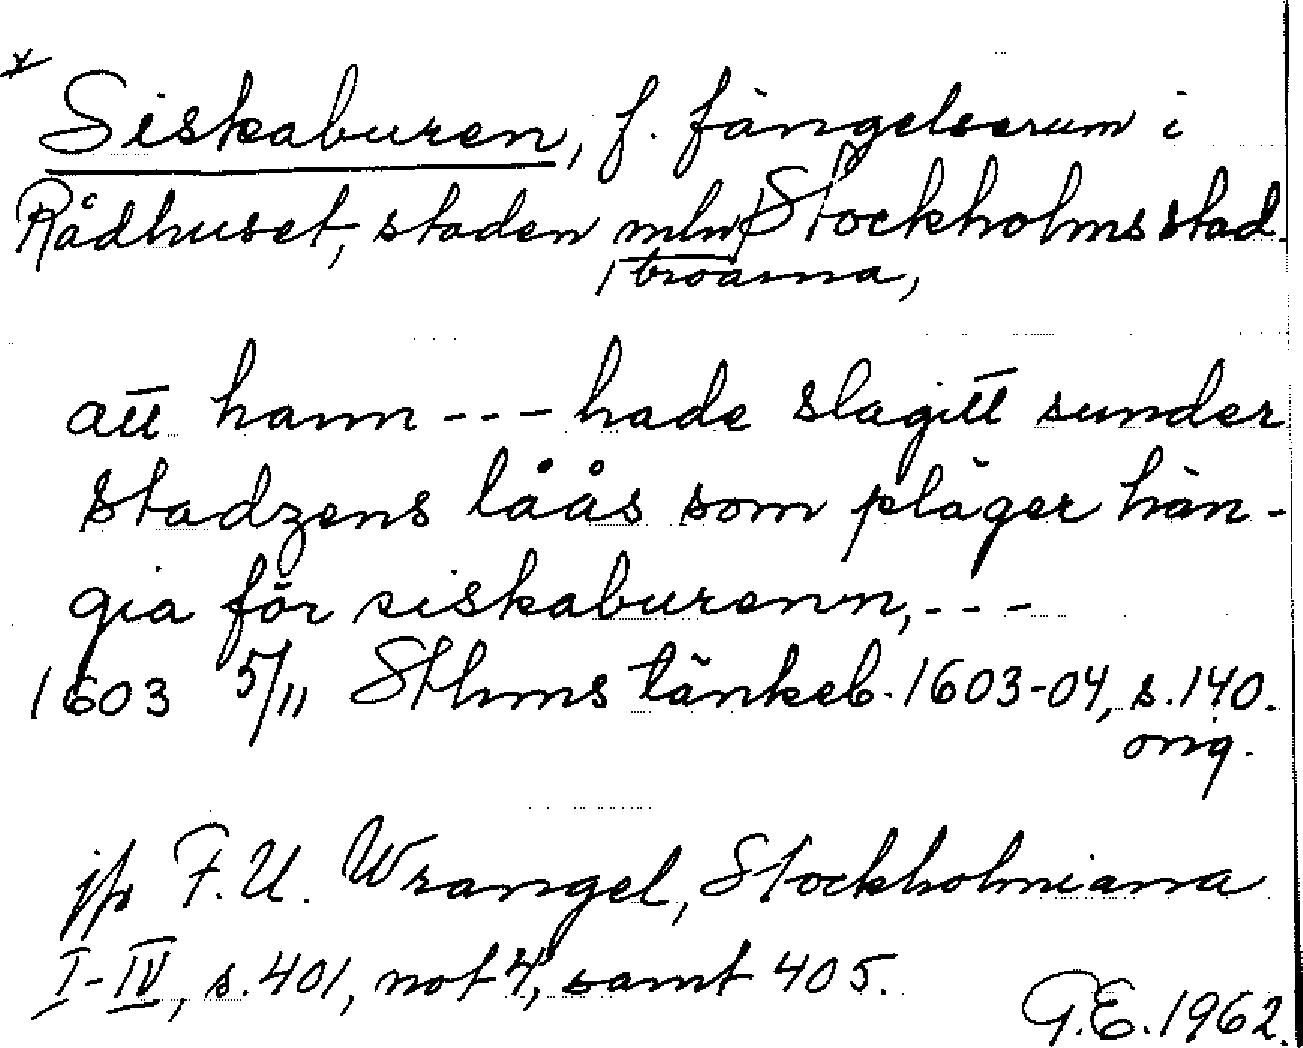 Siskaburen, f. fängelserum i
Rådhuset, staden mln Stockholms stad.
broarna,
att hann --- hade slagitt sunder
stadzens låås som pläger hän-
gia för siskaburenn, ---
1603 5/11 Sthms tänkeb. 1603-04, s. 140.
orig.
jfr F. U. Wrangel, Stockholmiana
I-IV, s. 401, not 4, samt 405.
G.E. 1962.